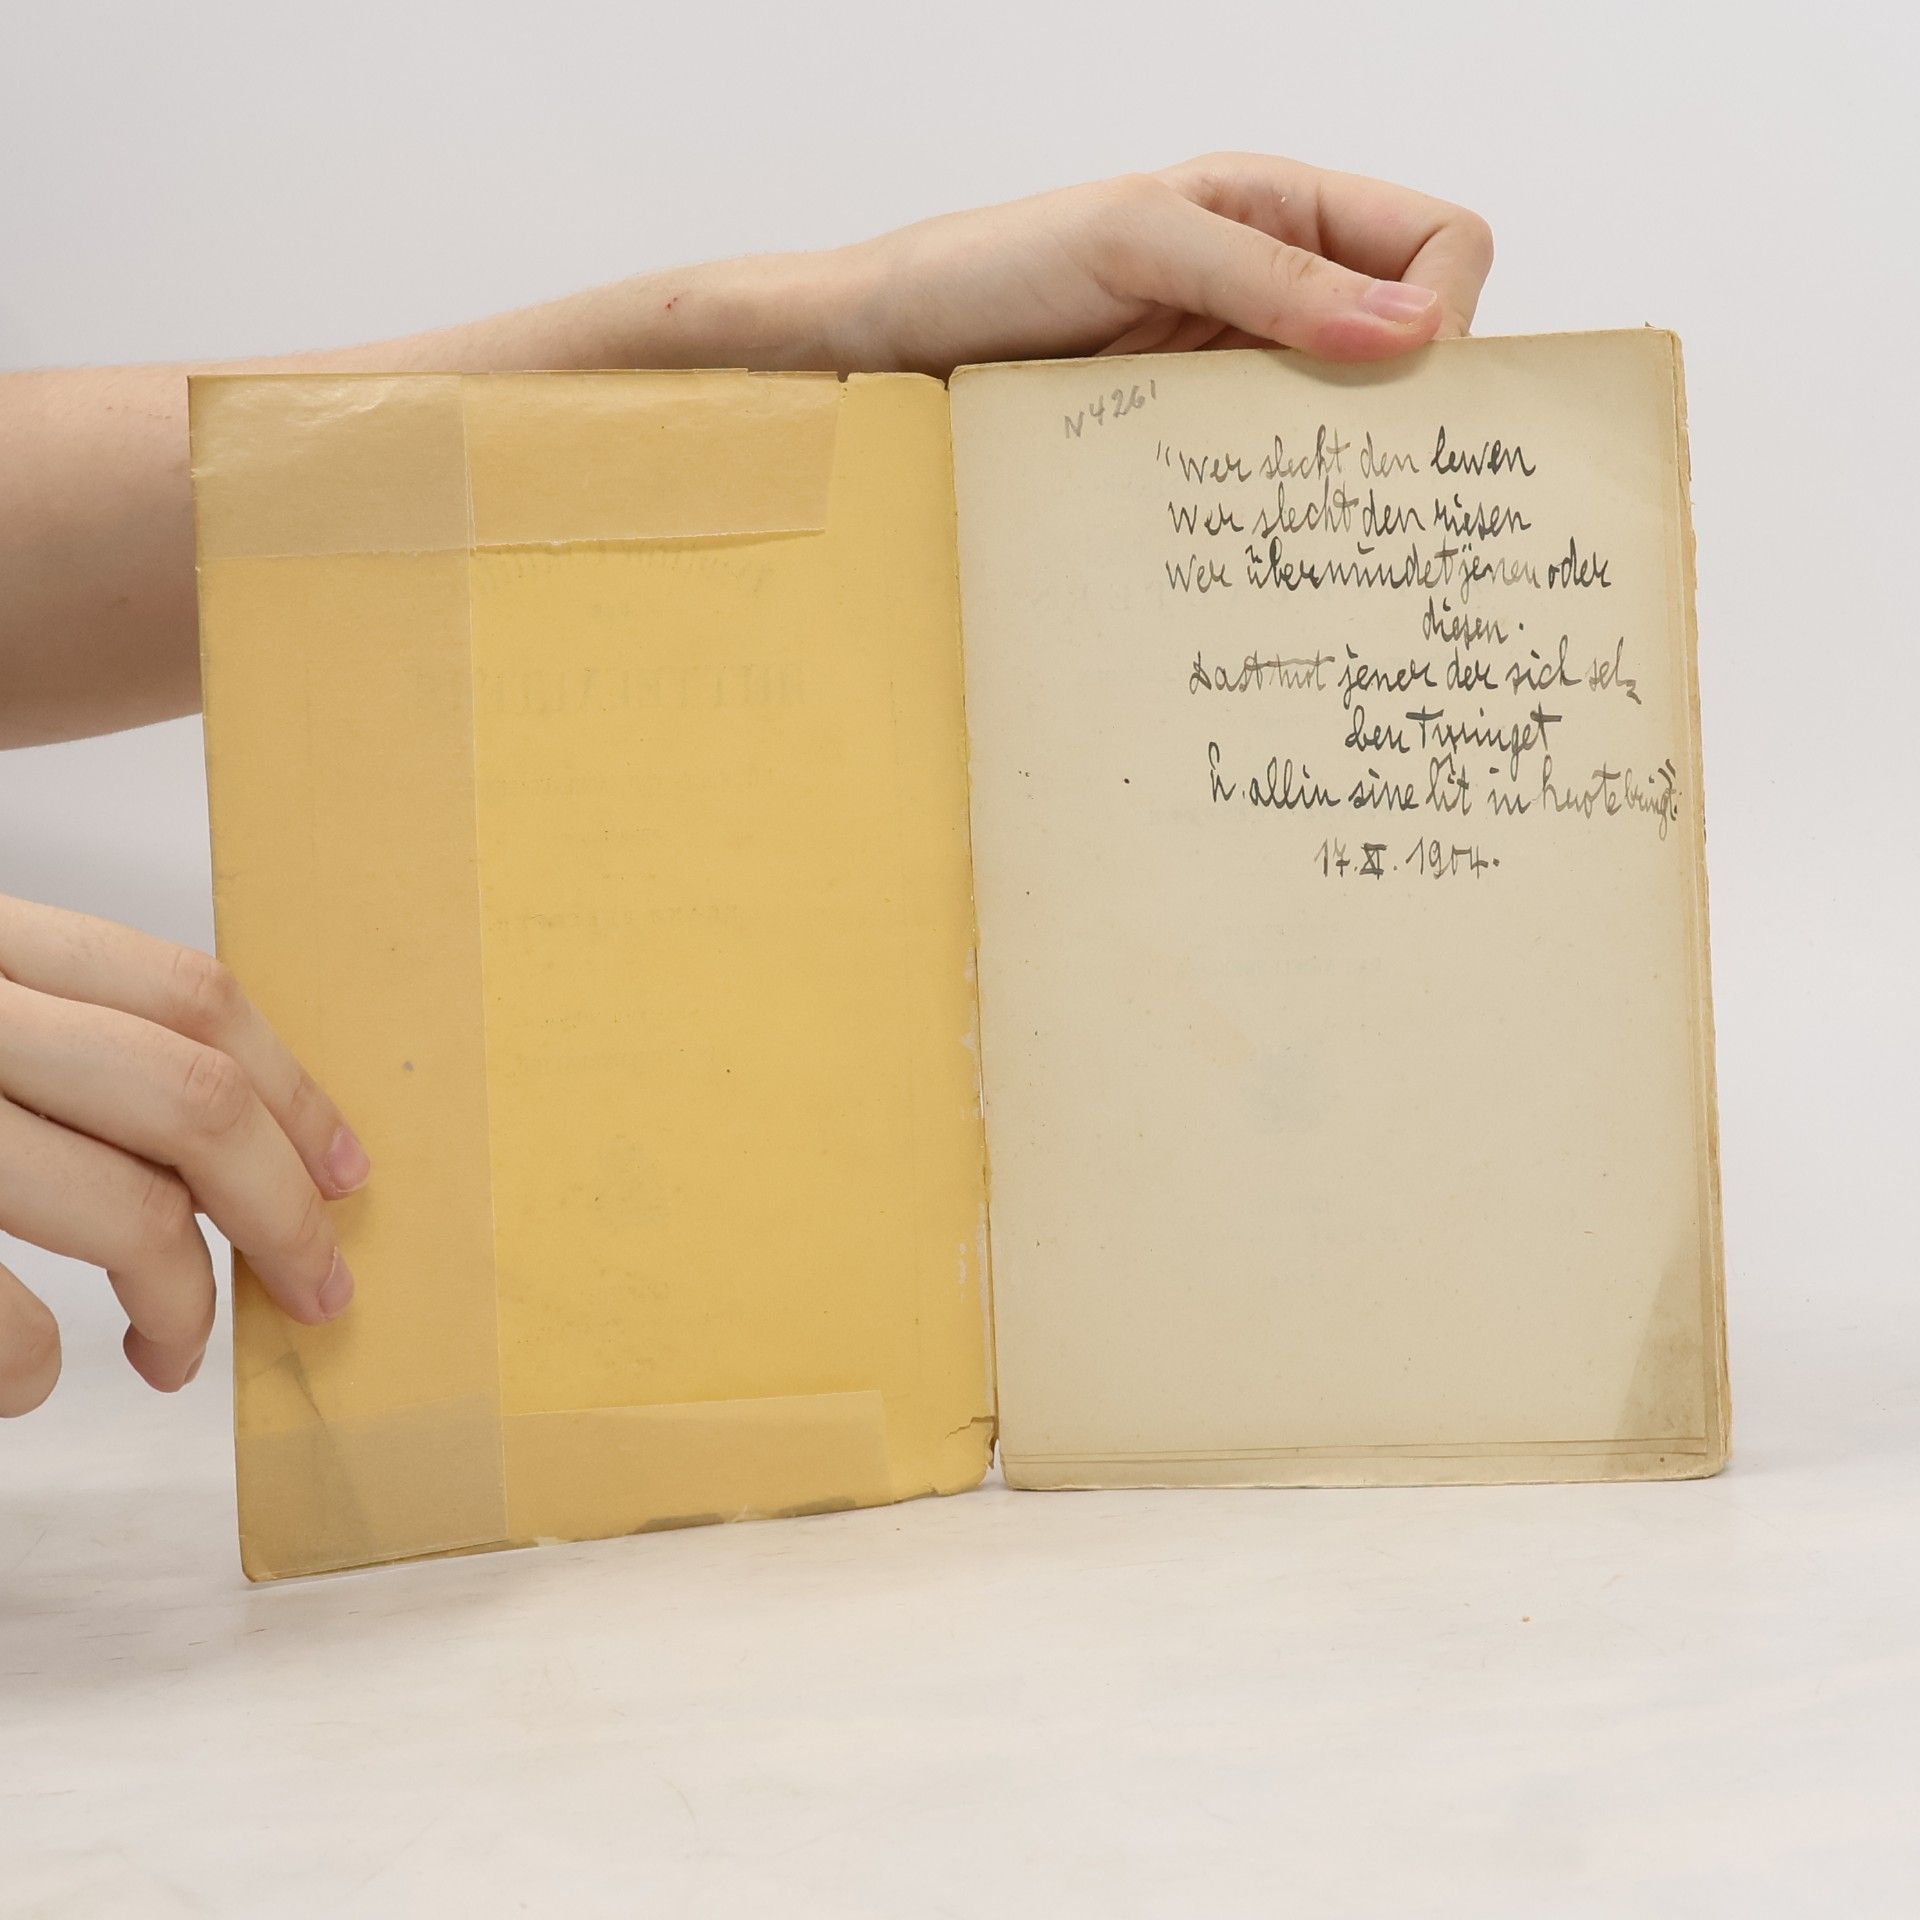 N 4261
"wer slecht den lewen
wer slecht den riesen
wer überwindet jenen oder
diesen.
Das tut jener der sich sel=
ben twinget
U. allin sine lit in huote bringt."
17. XI. 1904.